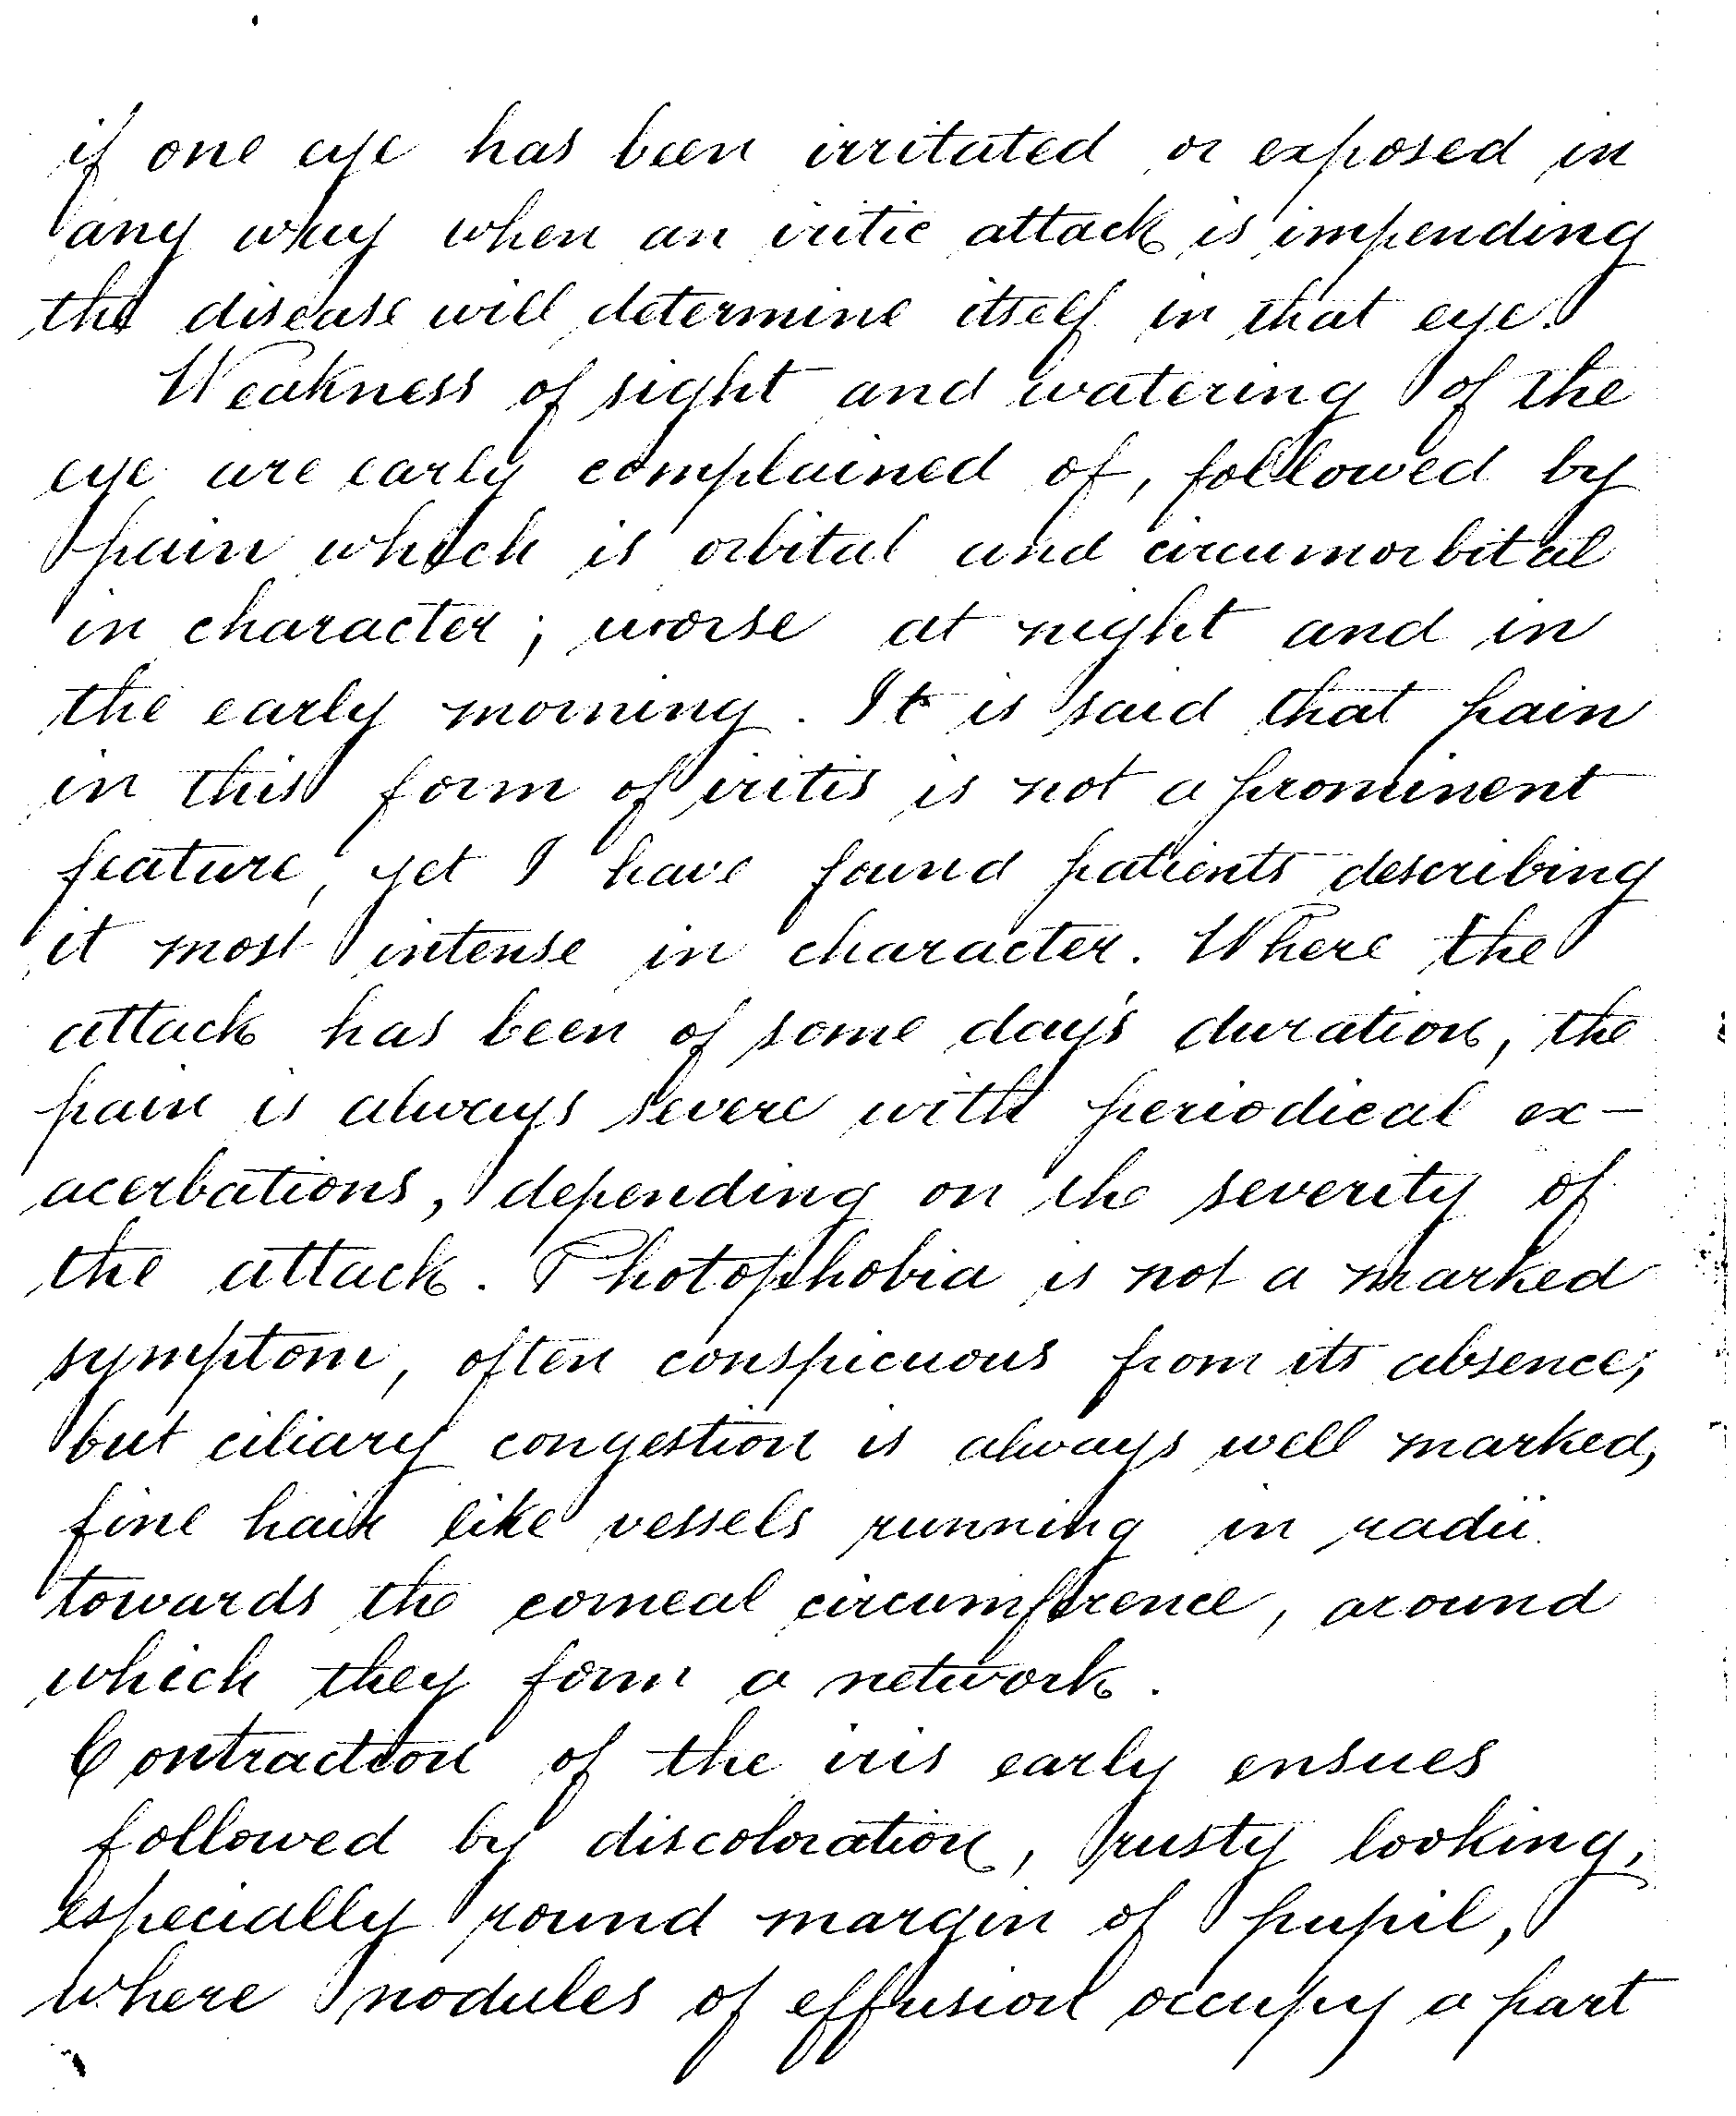 if one eye has been irritated or exposed in
any way when an iritic attack is impending
the disease will determine itself in that eye.
Weakness of sight and watering of the
eye are early complained of, followed by
pain which is orbital and circumorbital
in character; worse at night and in
the early morning. It is said that pain
in this form of iritis is not a prominent
feature, yet I have found patients describing
it most intense in character. Where the
attack has been of some day's duration, the
pain is always severe with periodical ex-
acerbations, depending on the severity of
the attack. Photophobia is not a marked
symptom, often conspicuous from its absence;
but ciliary congestion is always well marked,
fine hair like vessels running in radii
towards the corneal circumference, around
which they form a network.
Contraction of the iris early ensues
followed by discoloration, rusty looking,
especially round margin of pupil,
where nodules of effusion occupy a part